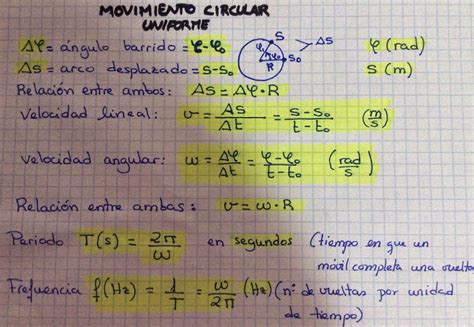 MOVIMIENTO CIRCULAR
UNIFORME
Δφ = ángulo barrido = φ-φ₀ φ (rad)
Δs = arco desplazado = s-s₀ s (m)
S φ₁ φ₀ S₀ R > Δs
Relación entre ambos: Δs = Δφ·R
Velocidad lineal: v = Δs/Δt = s-s₀/t-t₀ (m/s)
Velocidad angular: ω = Δφ/Δt = φ-φ₀/t-t₀ (rad/s)
Relación entre ambas: v = ω·R
Periodo T(s) = 2π/ω en segundos (tiempo en que un
móvil completa una vuelta
Frefuencia f(Hz) = 1/T = ω/2π (Hz) (nº de vueltas por unidad
de tiempo)